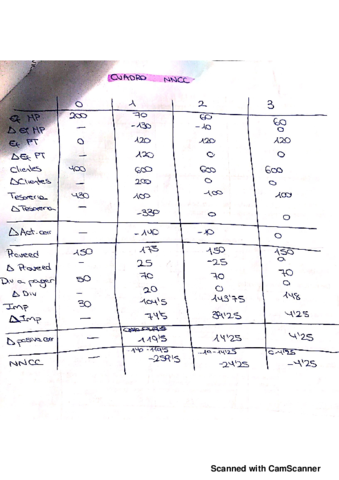 CUADRO NNCC
0 1 2 3
Ex MP 200 70 60 60
Δ Ex MP — -130 -10 0
Ex PT 0 120 120 120
Δ Ex PT — 120 0 0
Clientes 400 600 600 600
ΔClientes — 200 0 0
Tesoreria 430 100 100 100
Δ Tesoreria — -330 0 0
Δ Act. cor — -140 -10 0
Proveed 150 175 150 150
Δ Proveed — 25 -25 0
Div a pagar 50 70 70 70
Δ Div — 20 0 0
Imp 30 104'5 143'75 148
Δ Imp — 74'5 39'25 4'25
Δ pasivo cor — 119'5 14'25 4'25
-140-119'5 -10-14'25
NNCC — -259'5 -24'25 -4'25
Scanned with CamScanner